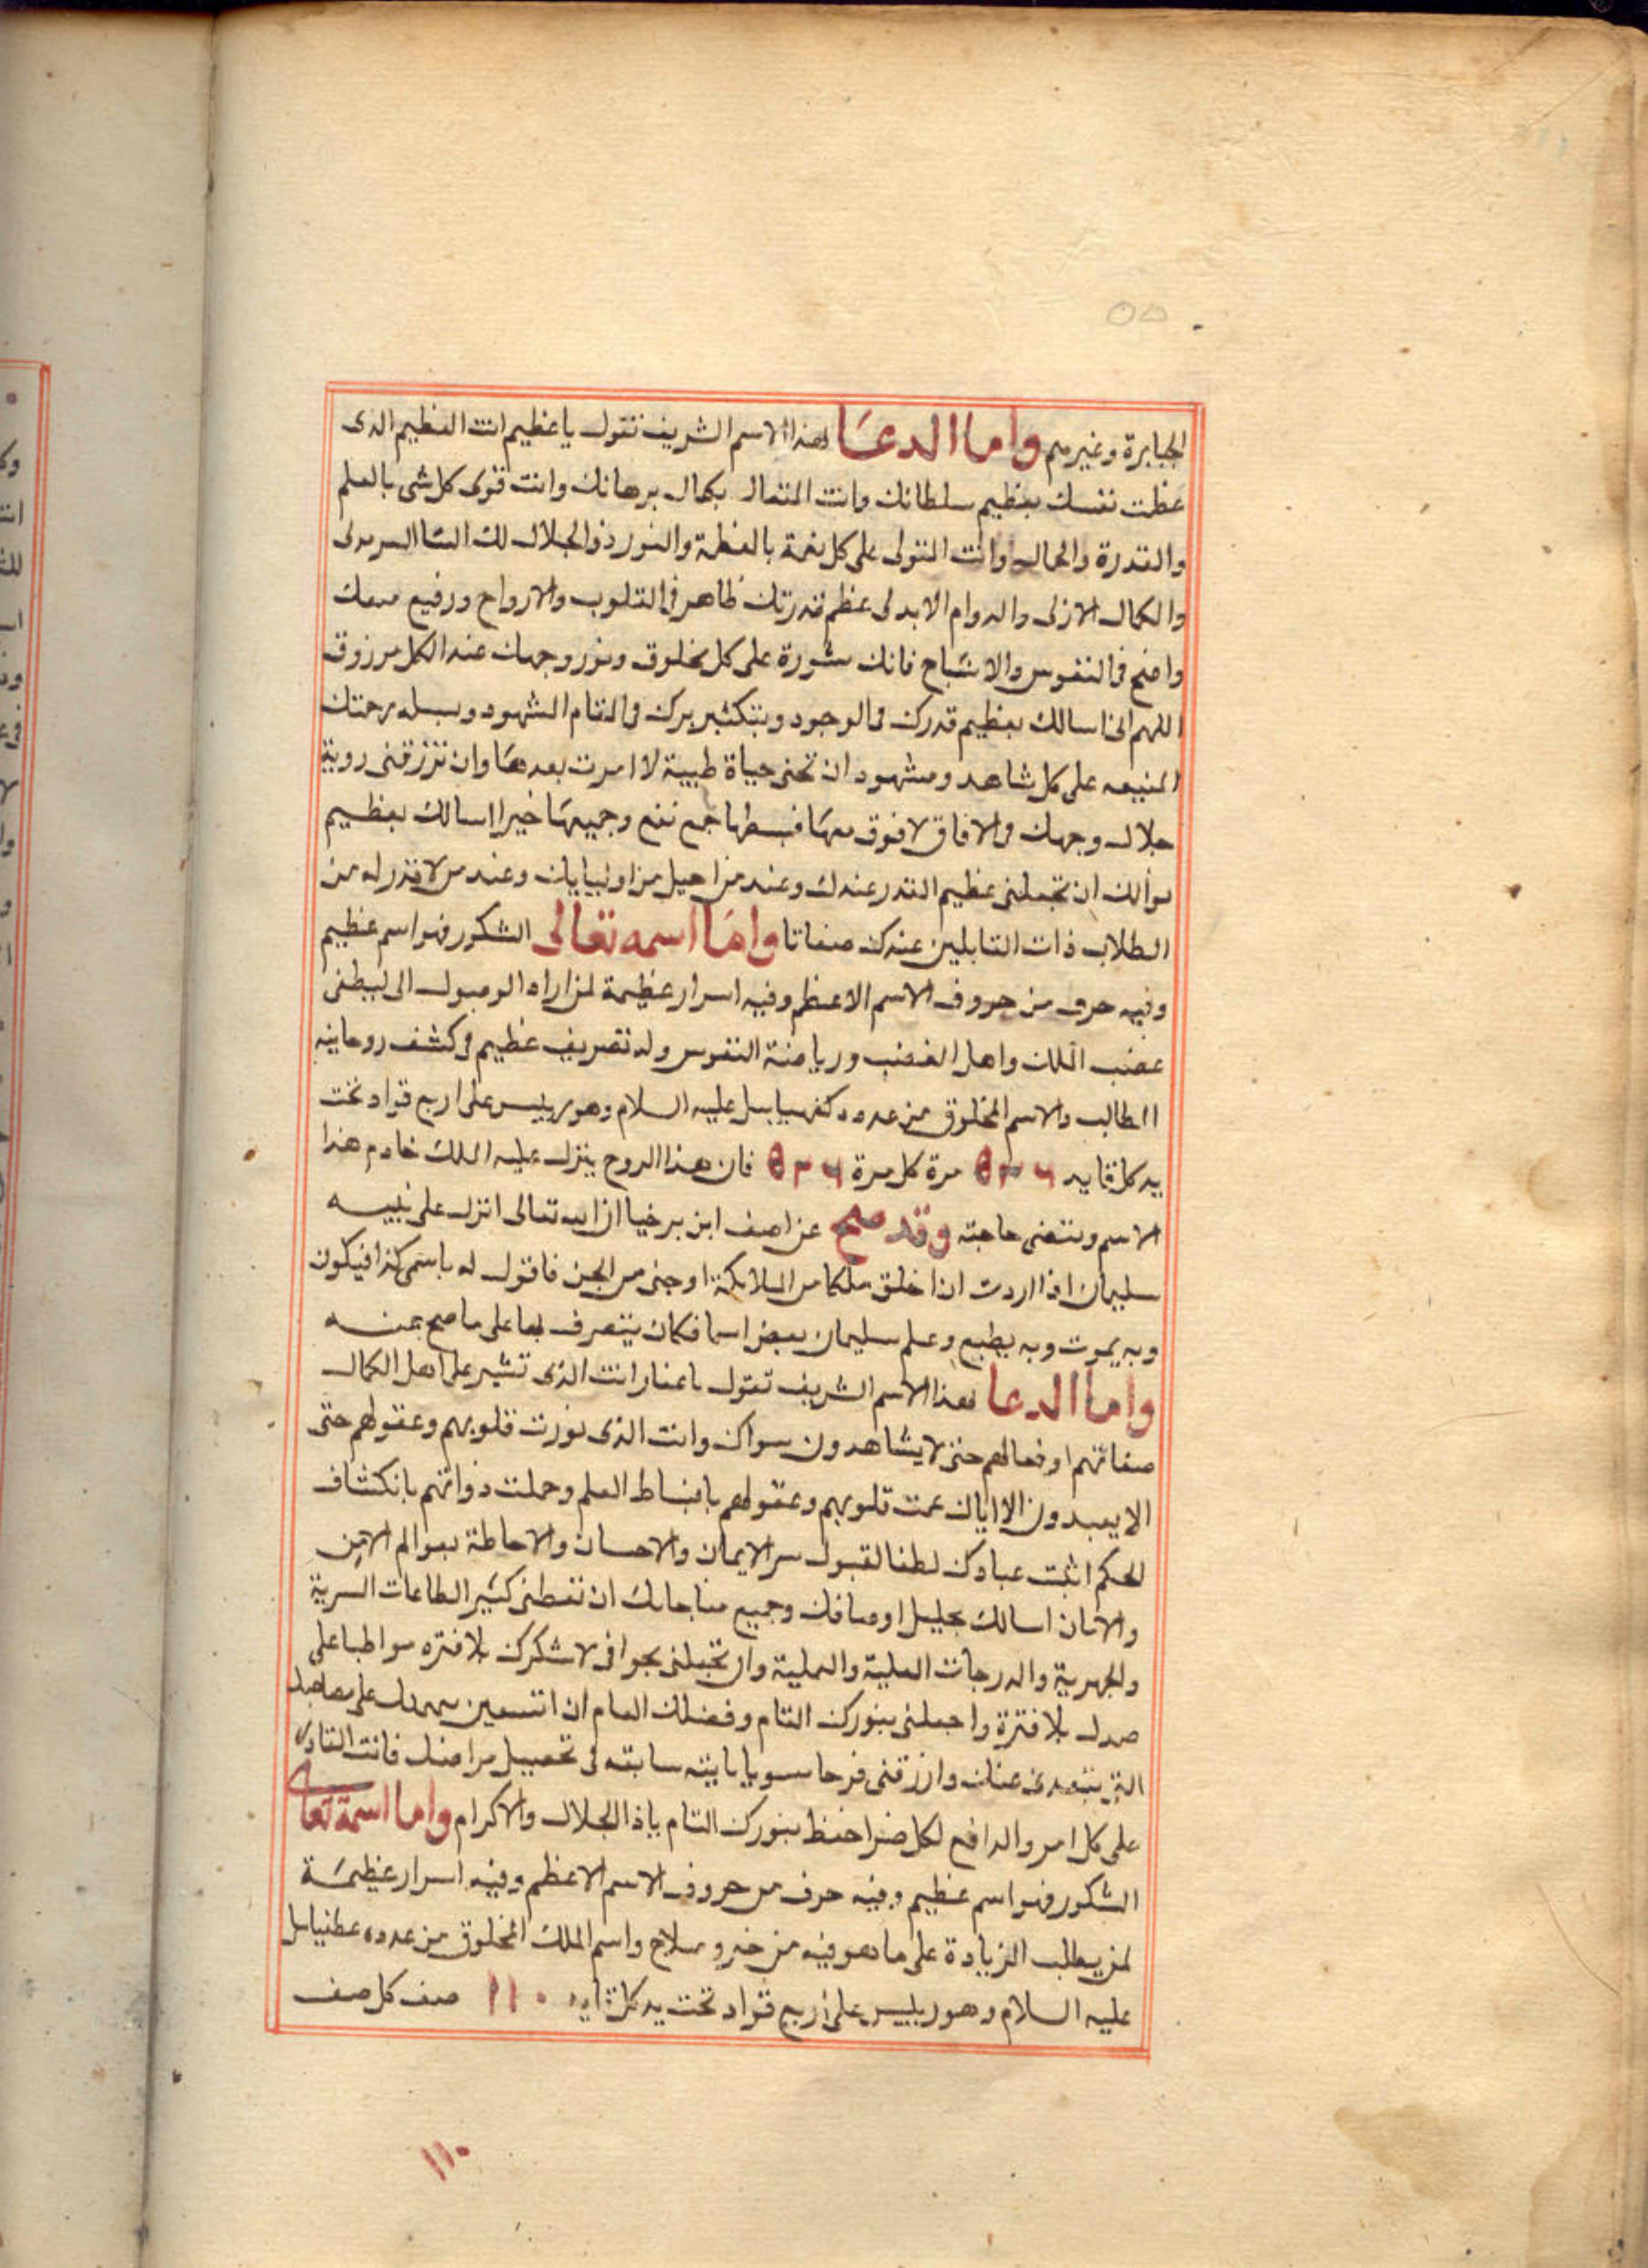 الجبابرة وغيرهم واما الدعا لهذا الاسم الشريف تقول يا عظيم انت العظيم الذى
عظمت نفسك بعظيم سلطانك وانت المتعال بكمال برهانك وانت قوى كل شى بالعلم
والقدرة والحال وانت المتولى على كل نعمة بالعظمة والنور ذو الجلال لك الثنا السرمدى
والكمال الازلى والدوام الابدى عظم قدرتك ظاهر فى القلوب والارواح ورفيع
واضح فى النفوس والاشباح فانك على كل مخلوق ونور وجهك عند الكل مرزوق
اللهم انى اسالك بعظيم قدرك فى الوجود وبتكثير برك فى المقام الشهود وبسبله رحمتك
المنيعه على كل شاهد ومشهود ان تحنى حياة طيبة لا امرت بعدها وان ترزقنى روية
جلال وجهك فى الافاق لا فوق معها فبسطها جمع نفع وجميعها خيرا اسالك بعظيم
نوالك ان تجعلنى عظيم القدر عندك وعند من احيل من اوليايك وعند من لا قدر له من
الطلاب ذات القابلين عندك صفاتا واما اسمه تعالى الشكور فهو اسم عظيم
وفيه حرف من حروف الاسم الاعظم وفيه اسرار عظيمة لمن اراد الوصول الى ليطفى
غضب الملك واهل الغضب ورياضة النفوس وله تصريف عظيم فى كشف روحانيه
الطالب والاسم المخلوق من عدده كفهيابيل عليه السلام وهو رييس على اربع قواد تحت
يد كل قايد ٥٣٦ مرة كل مرة ٥٣٦ فان هذا الروح ينزل عليه الملك خادم هذا
الاسم وتنقضى حاجته وقد صح عن اصف ابن برخيا ان الله تعالى انزل على نبيه
سليمان اذا اردت ان اخلق ملكا من الملايكة او جنى من الجن فاقول له باسمى كذا فيكون
وبه يموت وبه يطيع وعلم سليمان بعض اسما فكان يتصرف بها على ما صح عنه
واما الدعا لهذا الاسم الشريف تقول يا غفار انت الذى تشير على اهل الكمال
صفاتهم اوفعالهم حتى لا يشاهدون سواك وانت الذى نورت قلوبهم وعقولهم حتى
الا يعبدون الا اياك عمت قلوبهم وعقولهم بانبساط العلم وحملت ذواتهم بانكشاف
الحكم اثبت عبادك لطفا لقبول سر الايمان والاحسان والاحاطة بعوالم الامن
والامان اسالك بجليل اوصافك وجميع مناجاتك ان تعطنى كثير الطاعات السرية
والجهرية والدرجات العلية والعملية وان تجعلنى بجوافى لا شكرك بلا فتره مواظبا على
بلا فترة واجعلنى بنورك التام وفضلك العام ان على
التى عنك وارزقنى فرحا سويا سابقه فى تحصيل مراضك فانت القادر
على كل امر والدافع لكل ضر احفظ بنورك التام ياذا الجلال والاكرام واما اسمة تعا
الشكور فهو اسم عظيم وفيه حرف من حروف الاسم الاعظم وفيه اسرار عظيمة
لمن يطلب الزيادة على ما هو فيه من خير وصلاح واسم الملك المخلوق من عدده عطنيابيل
عليه السلام وهو رييس على اربع قواد تحت يد كل قايد ١١٠ صف كل صف
١١٠